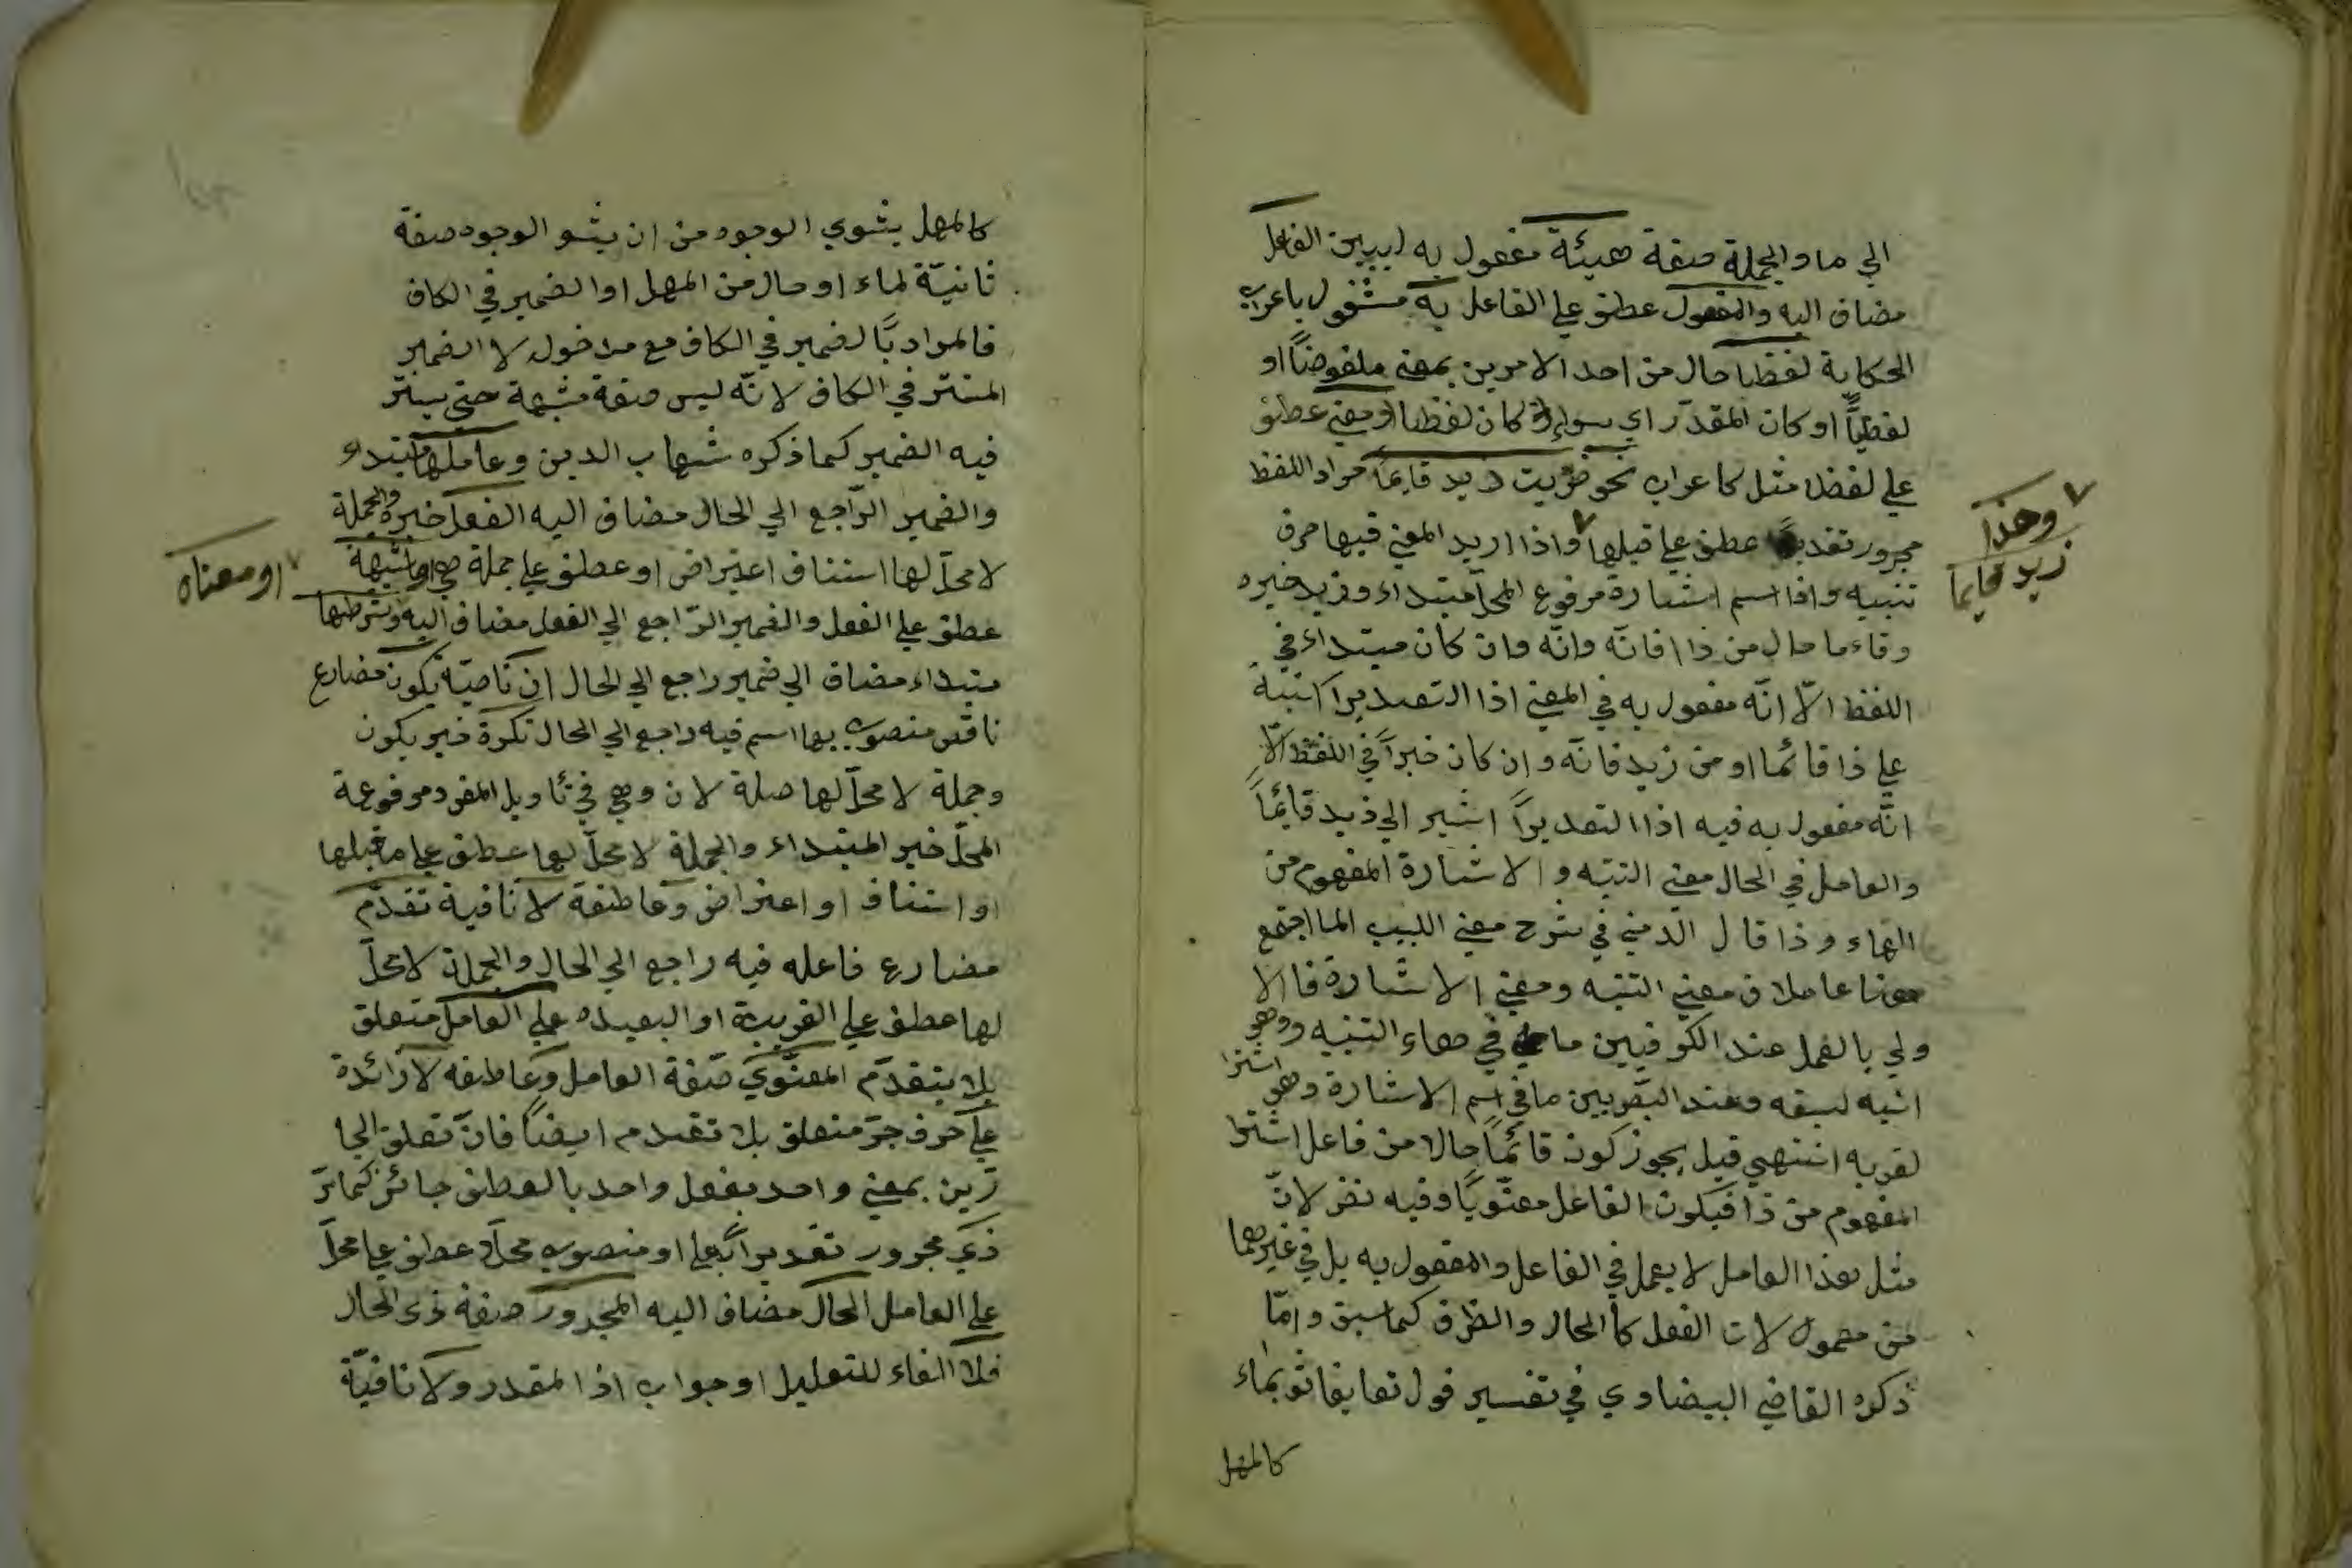 الي ما والجملة صفة هيئة مفعول به ليبين الفاعل
مضاف اليه والمفعول عطف علي الفاعل به مشغول باعراب
الحكاية لفظا حال من احد الامرين بمعني ملفوضاً او
لفظيّاً او كان المقدّر اي سواء كان لفظا او معني عطف
علي لفظا مثل كاعراب نحو ضربت زيد قايماً مراد اللفظ
مجرور تقديراً عطف علي قبلها واذا اريد المعني فيها حرف
وهذا
زيد قايما
تنبيه وذا اسم اشارة مرفوع المحلّ مبتداء وزيد خبره
وقاءما حال من ذا فانّه وانّه وان كان مبتداء في
اللفظ الّا انّه مفعول به في المعني اذا التقدير انبّه
علي ذا قائما او من زيد فانّه وان كان خبراً في اللفظ الّا
انّه مفعول به فيه اذا التقديراً اشير الي زيد قايماً
والعامل في الحال معني التنبّه والاشارة المفهوم من
الهاء وذا قال الدّمني في شرح مغني اللبيب الما اجتمع
هنا عاملان معني التنبّه ومعني الاشارة فالا
ولي بالعمل عند الكوفيين ما في هاء التنبيه وهو
انبّه لسبقه وعند البصريين ما في اسم الاشارة وهو اشير
لقربه انتهي قيل يجوز كون قائماً حالا من فاعل اشير
المفهوم من ذا فيكون الفاعل معنويّاً وفيه نظر لانّ
مثل هذا العامل لا يعمل في الفاعل والمفعول به بل في غيرهما
من معمولات الفعل كالحال والظرف كما سبق وامّا
ذكره القاضي البيضاوي في تفسير قول تعا يغاثو بماء
كالمهل
كالمهل يشوي الوجوه من ان يشو الوجوه صفة
ثانيّة لماء او حال من المهل او الضمير في الكاف
فالمراد بالضمير في الكاف مع مدخول لا الضمير
المستتر في الكاف لانّه ليس صفة مشبهة حتي يستتر
فيه الضمير كما ذكره شهاب الدين وعاملها مبتداء
والضمير الرّاجع الي الحال مضاف اليه الفعل خبره والجملة
لا محلّ لها استئناف اعتراض او عطف علي جملة هي او شبهة
او معناه
عطف علي الفعل والضمير الرّاجع الي الفعل مضاف اليه وشرطها
مبتداء مضاف الي ضمير راجع الي الحال ان ناصبة يكون مضارع
ناقص منصوب بها اسم فيه راجع الي الحال نكرة خبر يكون
وجملة لا محلّ لها صلة لان وهي في تاويل المفرد مرفوعة
المحلّ خبر المبتداء والجملة لا محلّ لها عطف علي ما قبلها
او استئناف او اعتراض وعاطفة لا نافية تقدّم
مضارع فاعله فيه راجع الي الحال والجملة لا محلّ
لها عطف علي القريبة او البعيده علي العامل متعلق
بلا يتقدّم المعنويّ صفة العامل وعاطفه لا زائدة
علي حرف جرّ متعلق بلا تقدم ايضاً فانّ تعلق الجا
رّين بمعني واحد بفعل واحد بالعطف جائز كما مرّ
ذي مجرور تقديراً بعلي او منصوب محلّاً عطف علي محلّ
علي العامل الحال مضاف اليه المجرور صفة ذي الحال
فلا الفاء للتعليل او جواب اذا المقدر ولا نافيّة